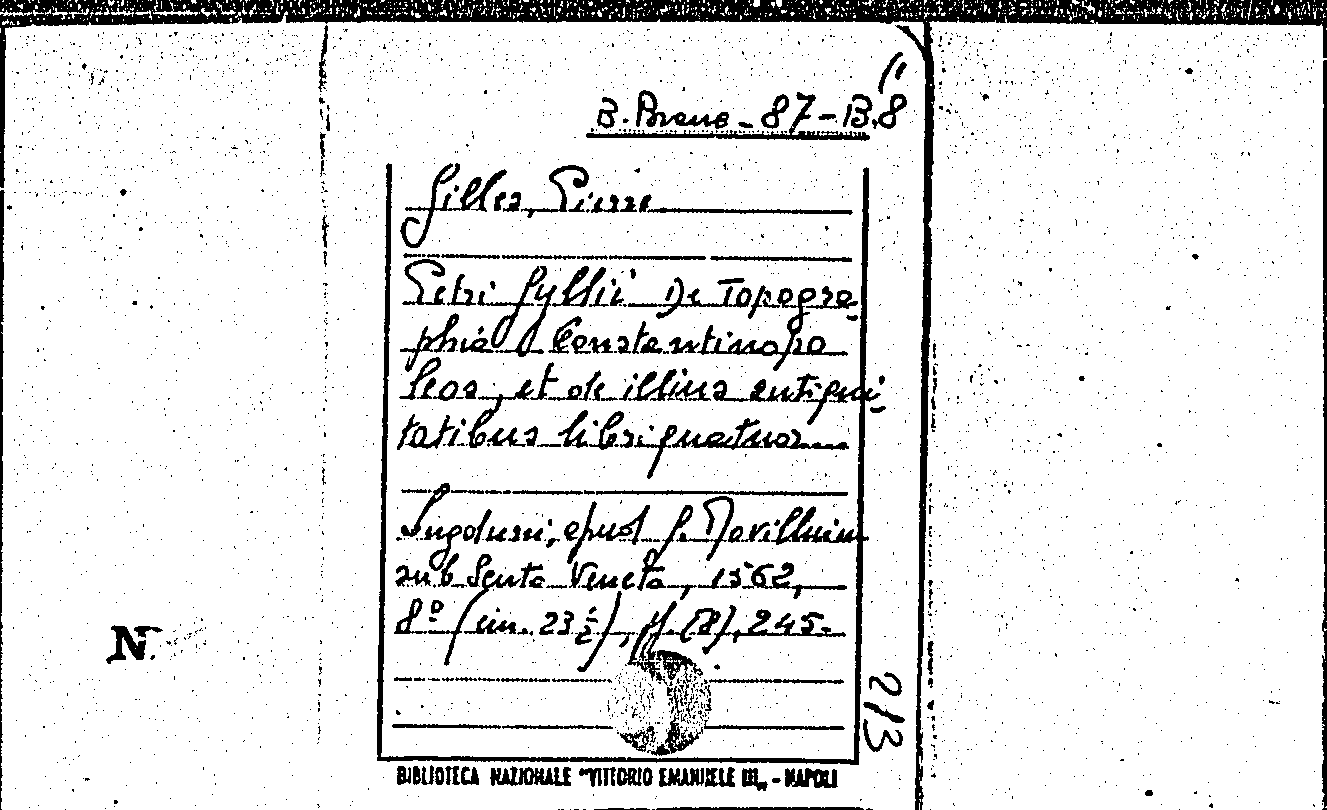 (1
B. Branc. - 87 - B.8
Gilles, Pierre
Petri Gyllii De Topogra-
phia Constantinopo
leos, et de illius antiqui-
tatibus libri quatuor
Lugduni, apud G. Rovillium
sub Scuto Veneto, 1562,
8º (cm. 23 ½), ff. (8), 245.
N.
213
BIBLIOTECA NAZIONALE "VITTORIO EMANUELE III„ - NAPOLI